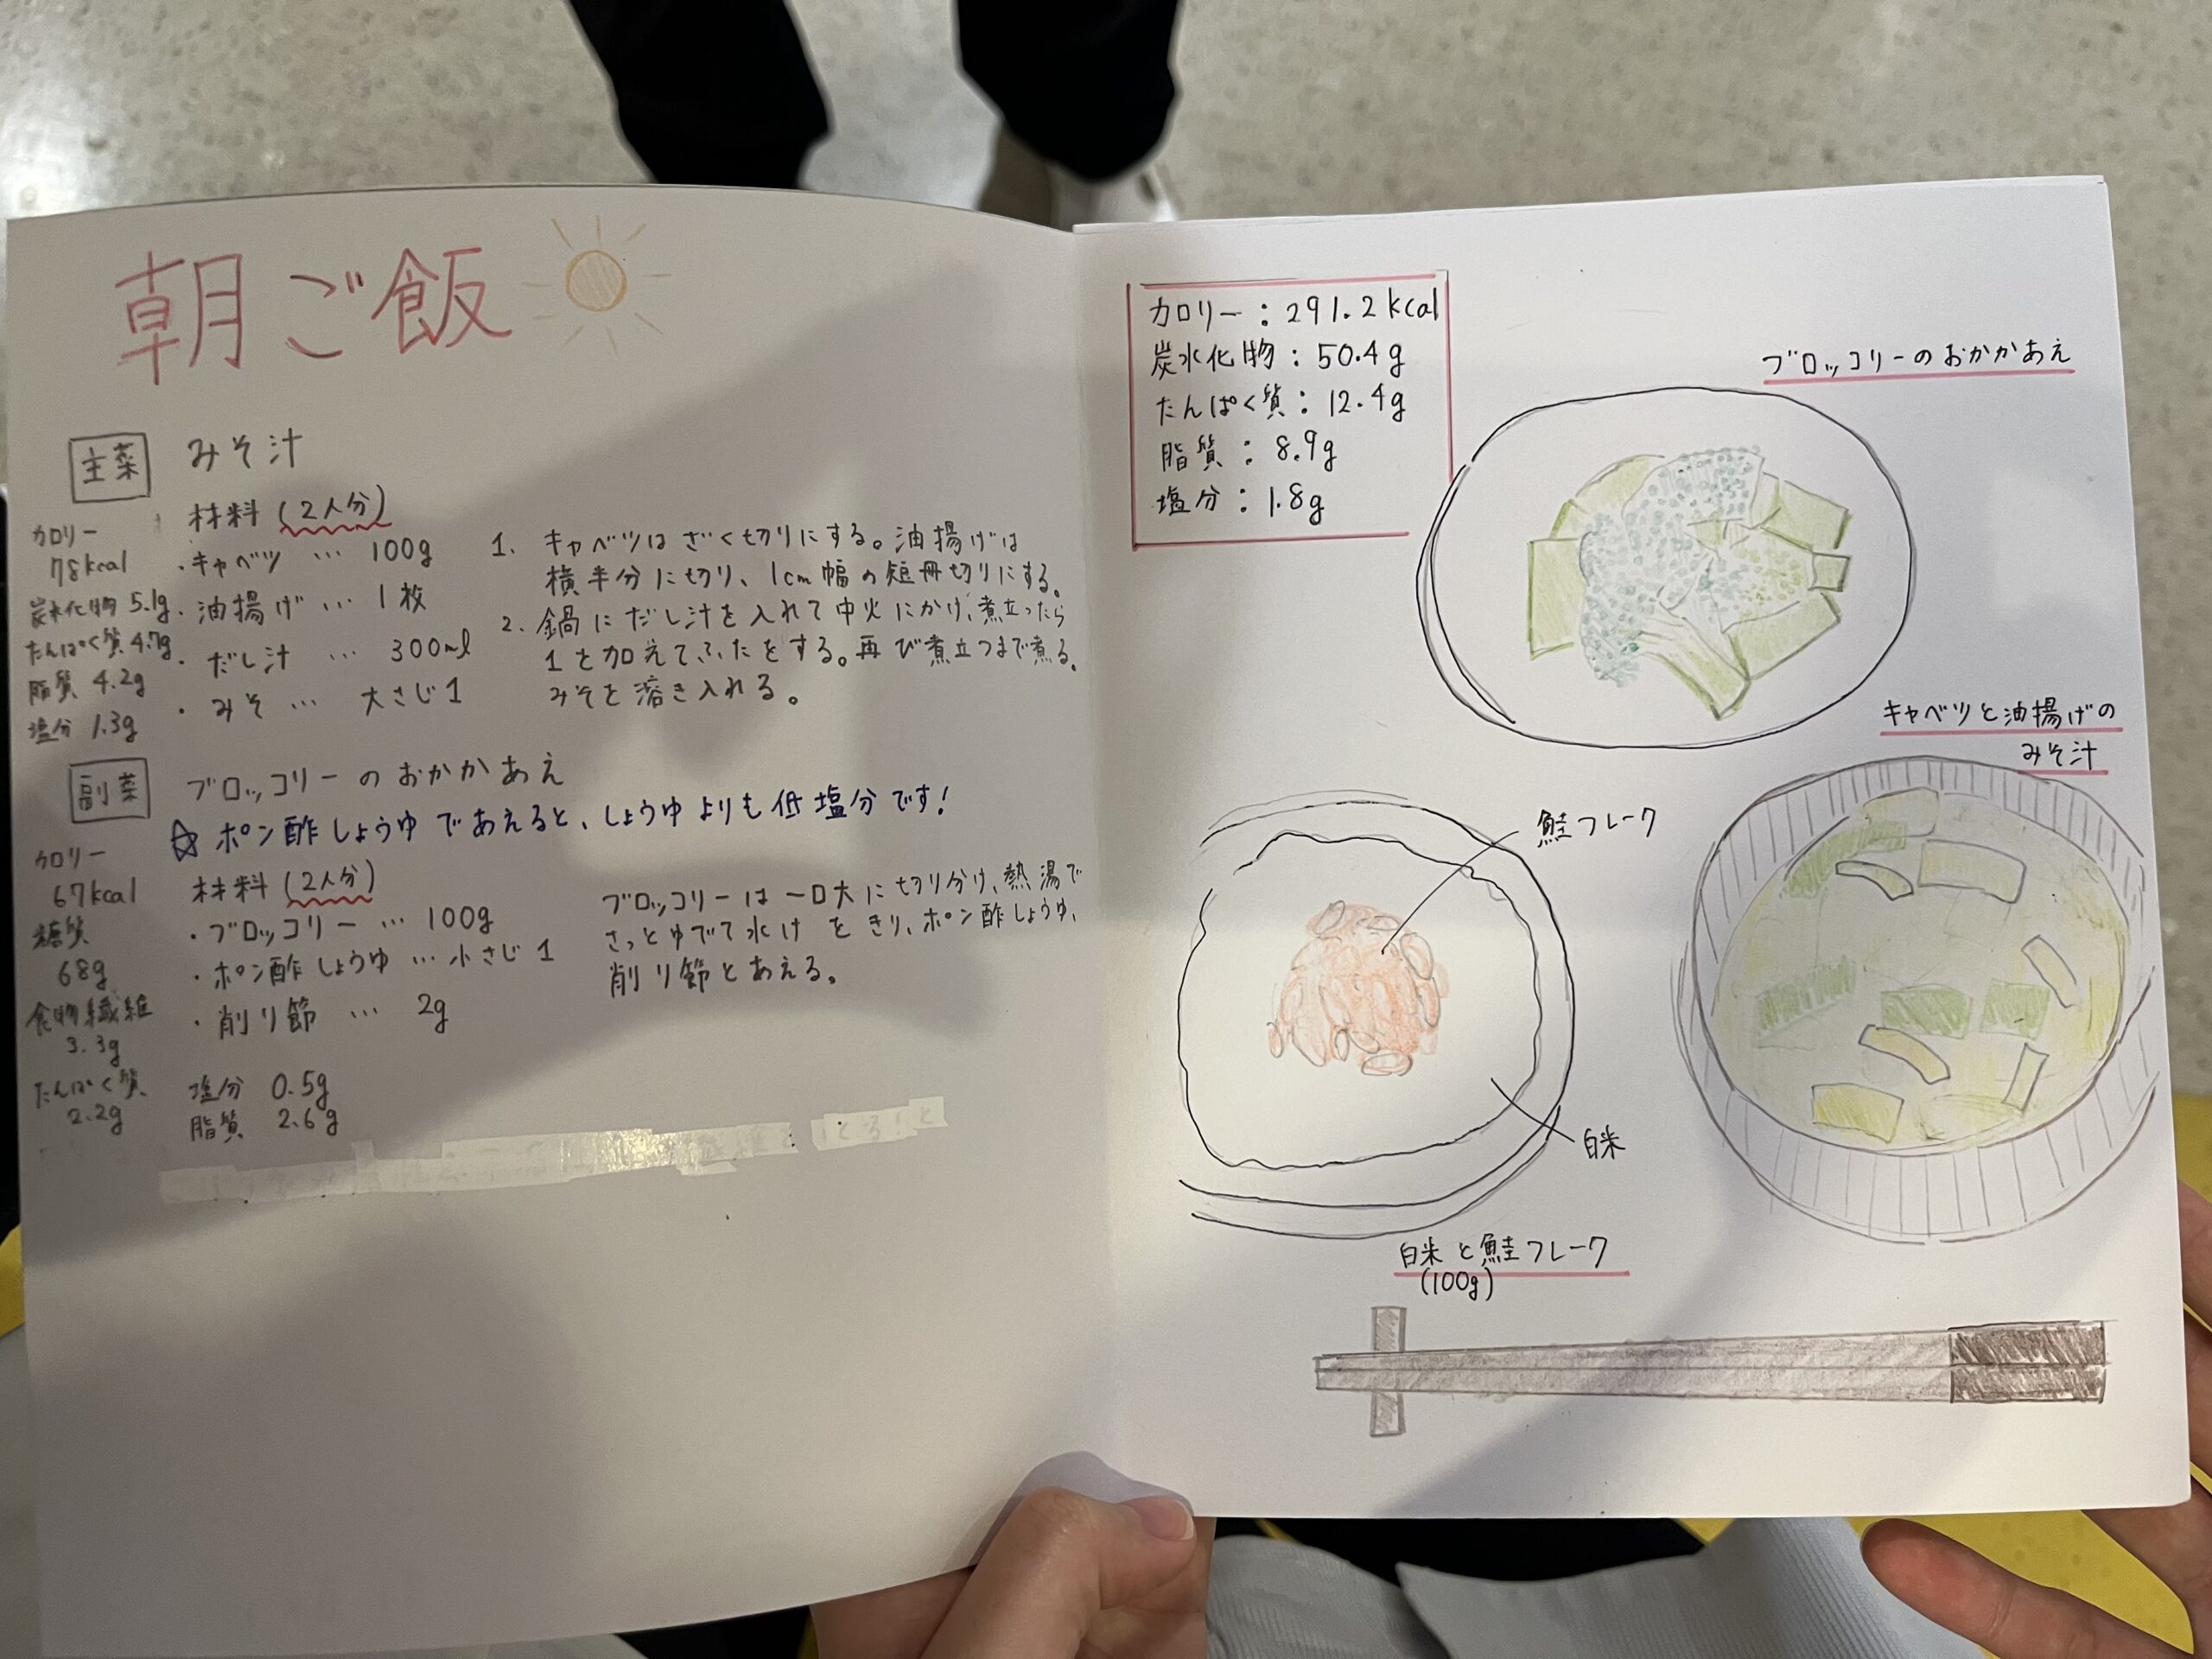 朝ご飯
主菜 みそ汁
カロリー
78kcal
炭水化物 5.1g
たんぱく質 4.7g
脂質 4.2g
塩分 1.3g
材料(2人分)
・キャベツ … 100g
・油揚げ … 1枚
・だし汁 … 300ml
・みそ … 大さじ1
1. キャベツはざく切りにする。油揚げは
横半分に切り、1cm幅の短冊切りにする。
2. 鍋にだし汁を入れて中火にかけ、煮立ったら
1を加えてふたをする。再び煮立つまで煮る。
みそを溶き入れる。
副菜 ブロッコリーのおかかあえ
☆ポン酢しょうゆであえると、しょうゆよりも低塩分です!
カロリー
67kcal
糖質
68g
食物繊維
3.3g
たんぱく質
2.2g
材料(2人分)
・ブロッコリー … 100g
・ポン酢しょうゆ … 小さじ1
・削り節 … 2g
塩分 0.5g
脂質 2.6g
ブロッコリーは一口大に切り分け、熱湯で
さっとゆでて水けをきり、ポン酢しょうゆ、
削り節とあえる。
カロリー:291.2kcal
炭水化物:50.4g
たんぱく質:12.4g
脂質:8.9g
塩分:1.8g
ブロッコリーのおかかあえ
キャベツと油揚げの
みそ汁
鮭フレーク
白米
白米と鮭フレーク
(100g)